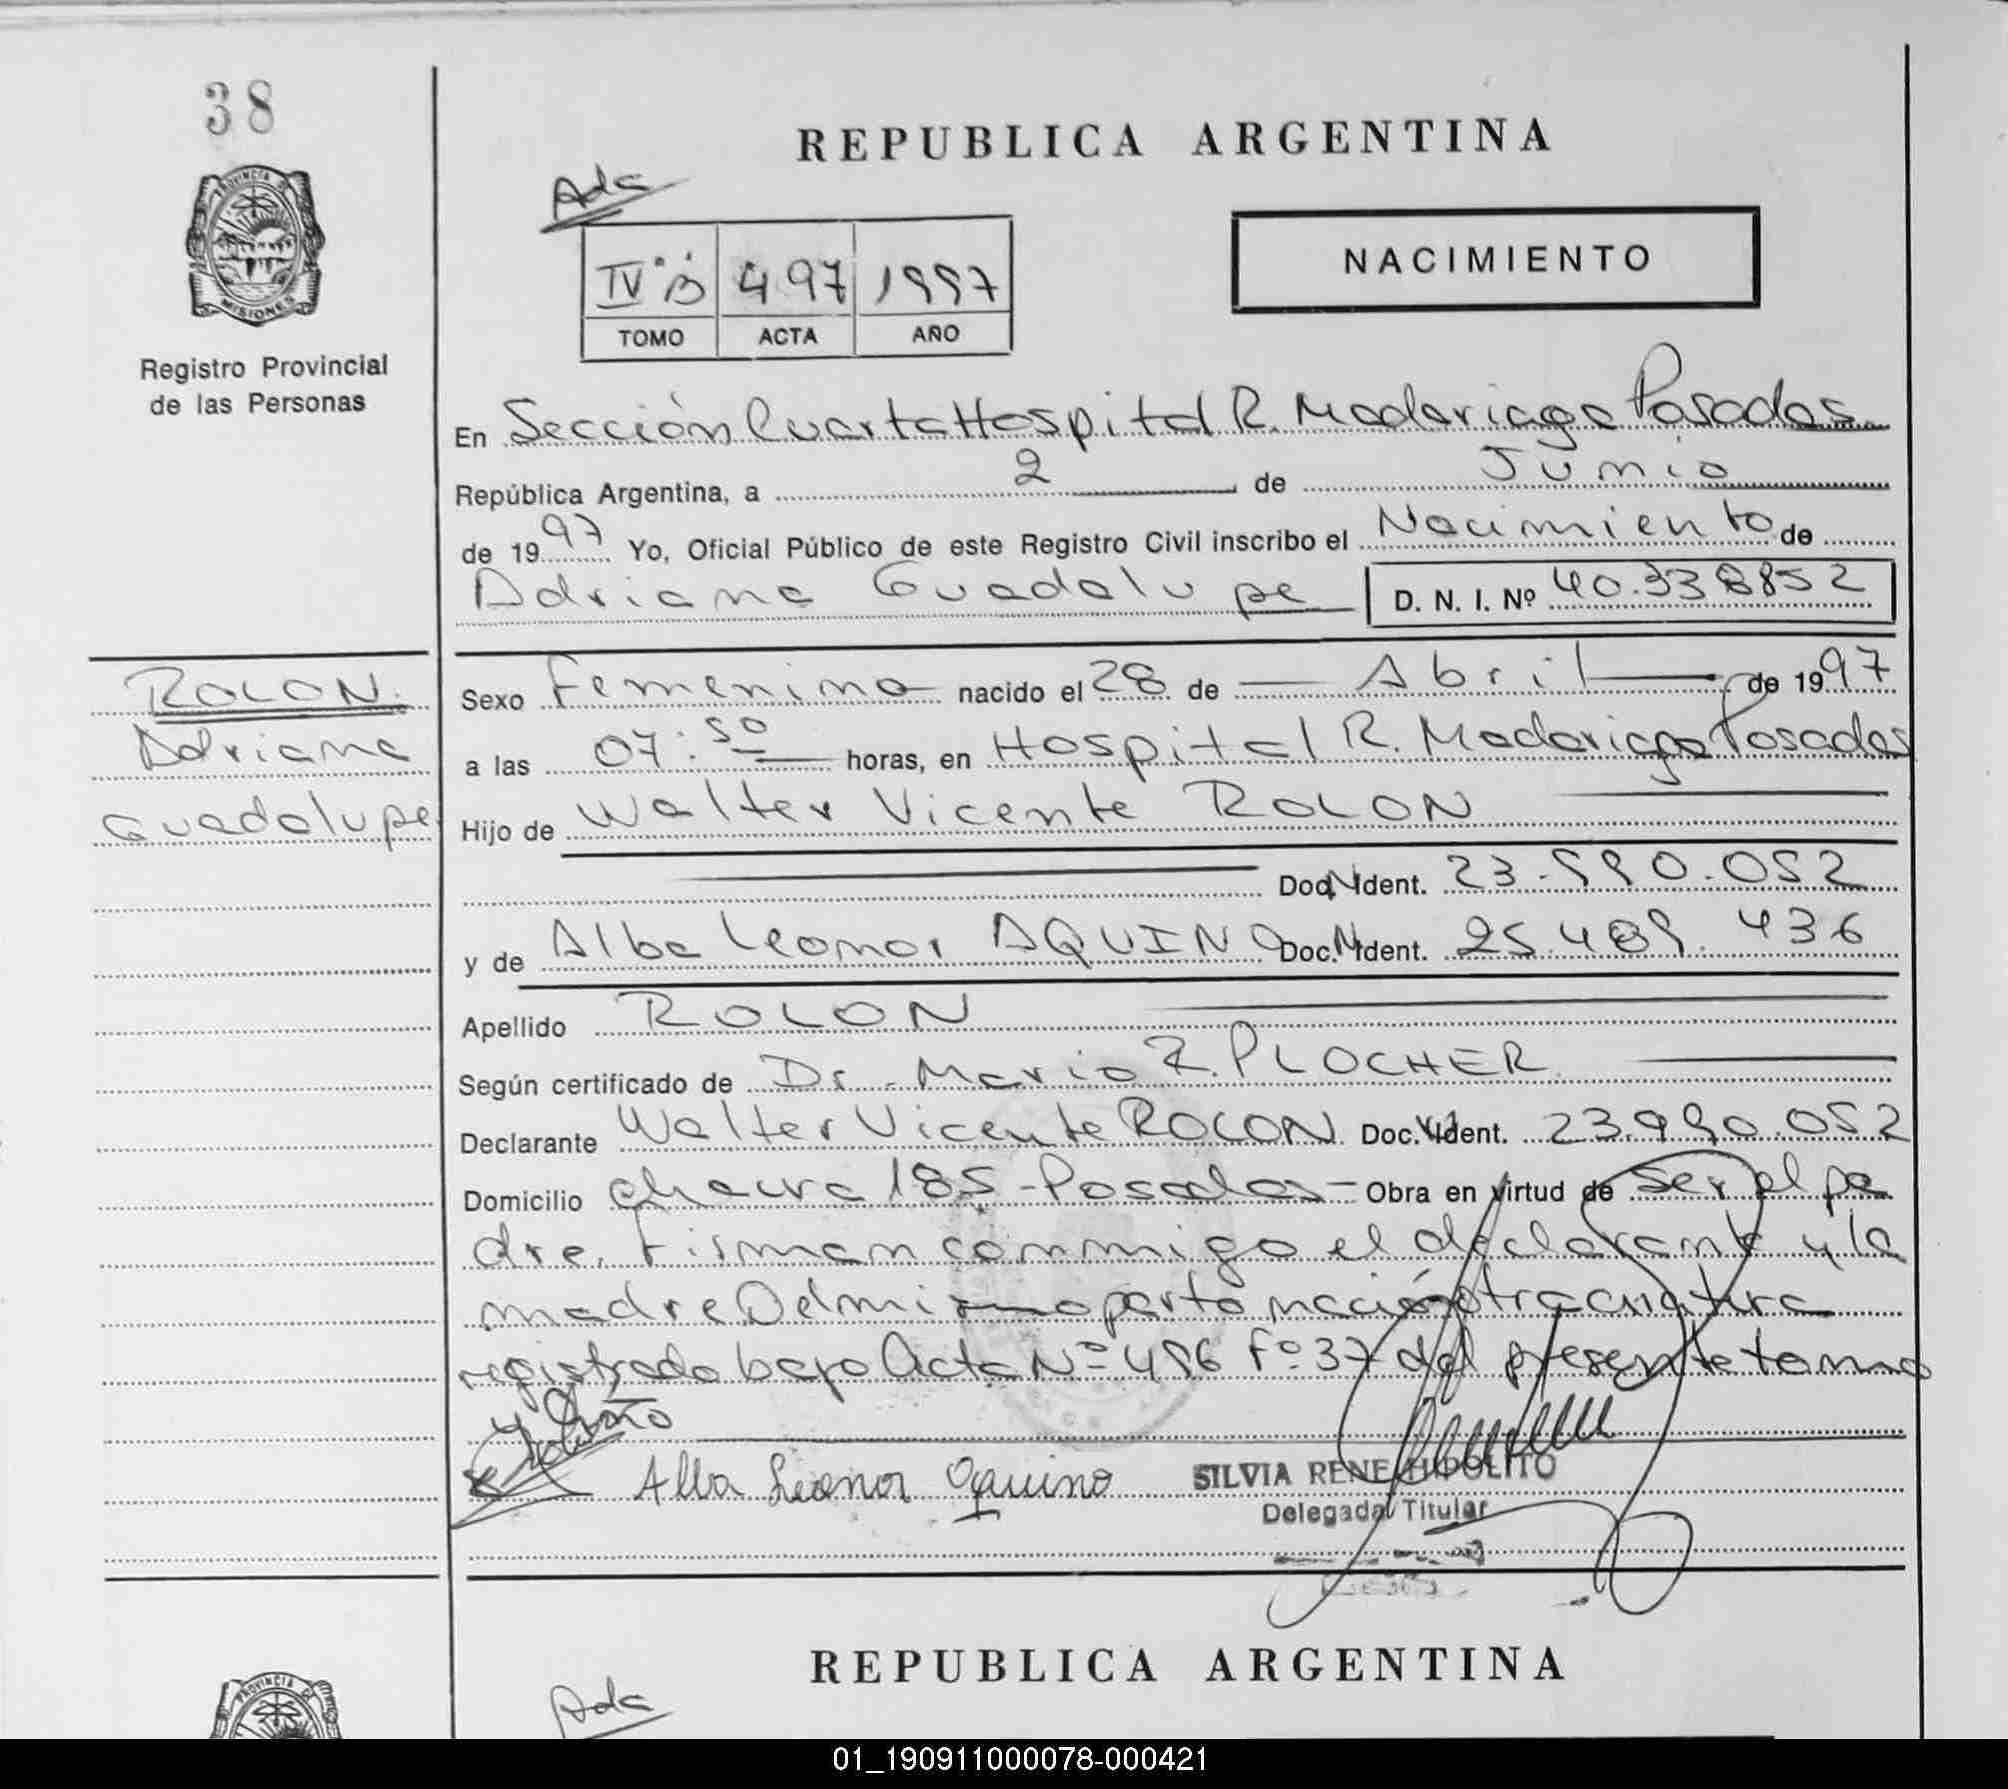 38
REPUBLICA ARGENTINA
Ada
NACIMIENTO
IV "B" 497 1997
TOMO ACTA AÑO
PROVINCIA DE MISIONES
Registro Provincial
de las Personas
En Sección Cuarta Hospital R. Madariaga Posadas
República Argentina, a 2 de Junio
de 1997 Yo, Oficial Público de este Registro Civil inscribo el Nacimiento de
Adriana Guadalupe D. N. I. Nº 40.338852
ROLON.
Adriana
Guadalupe
Sexo Femenino nacido el 28 de Abril de 1997
a las 07:50 horas, en Hospital R. Madariaga Posadas
Hijo de Walter Vicente ROLON
Doc. Ident. 23.990.052
y de Alba Leonor AQUINO Doc. Ident. 25.489.436
Apellido ROLON
Según certificado de Dr. Mario Z. PLOCHER
Declarante Walter Vicente ROLON Doc. Ident. 23.990.052
Domicilio Chacra 185 - Posadas - Obra en virtud de ser el pa
dre. Firman conmigo el declarante y la
madre Del mismo parto nació otra criatura
registrada bajo Acta Nº 496 Fº 37 del presente tomo
y año
Alba Leonor Aquino
SILVIA RENE HIPOLITO
Delegada Titular
REPUBLICA ARGENTINA
Ada
PROVINCIA DE
01_190911000078-000421